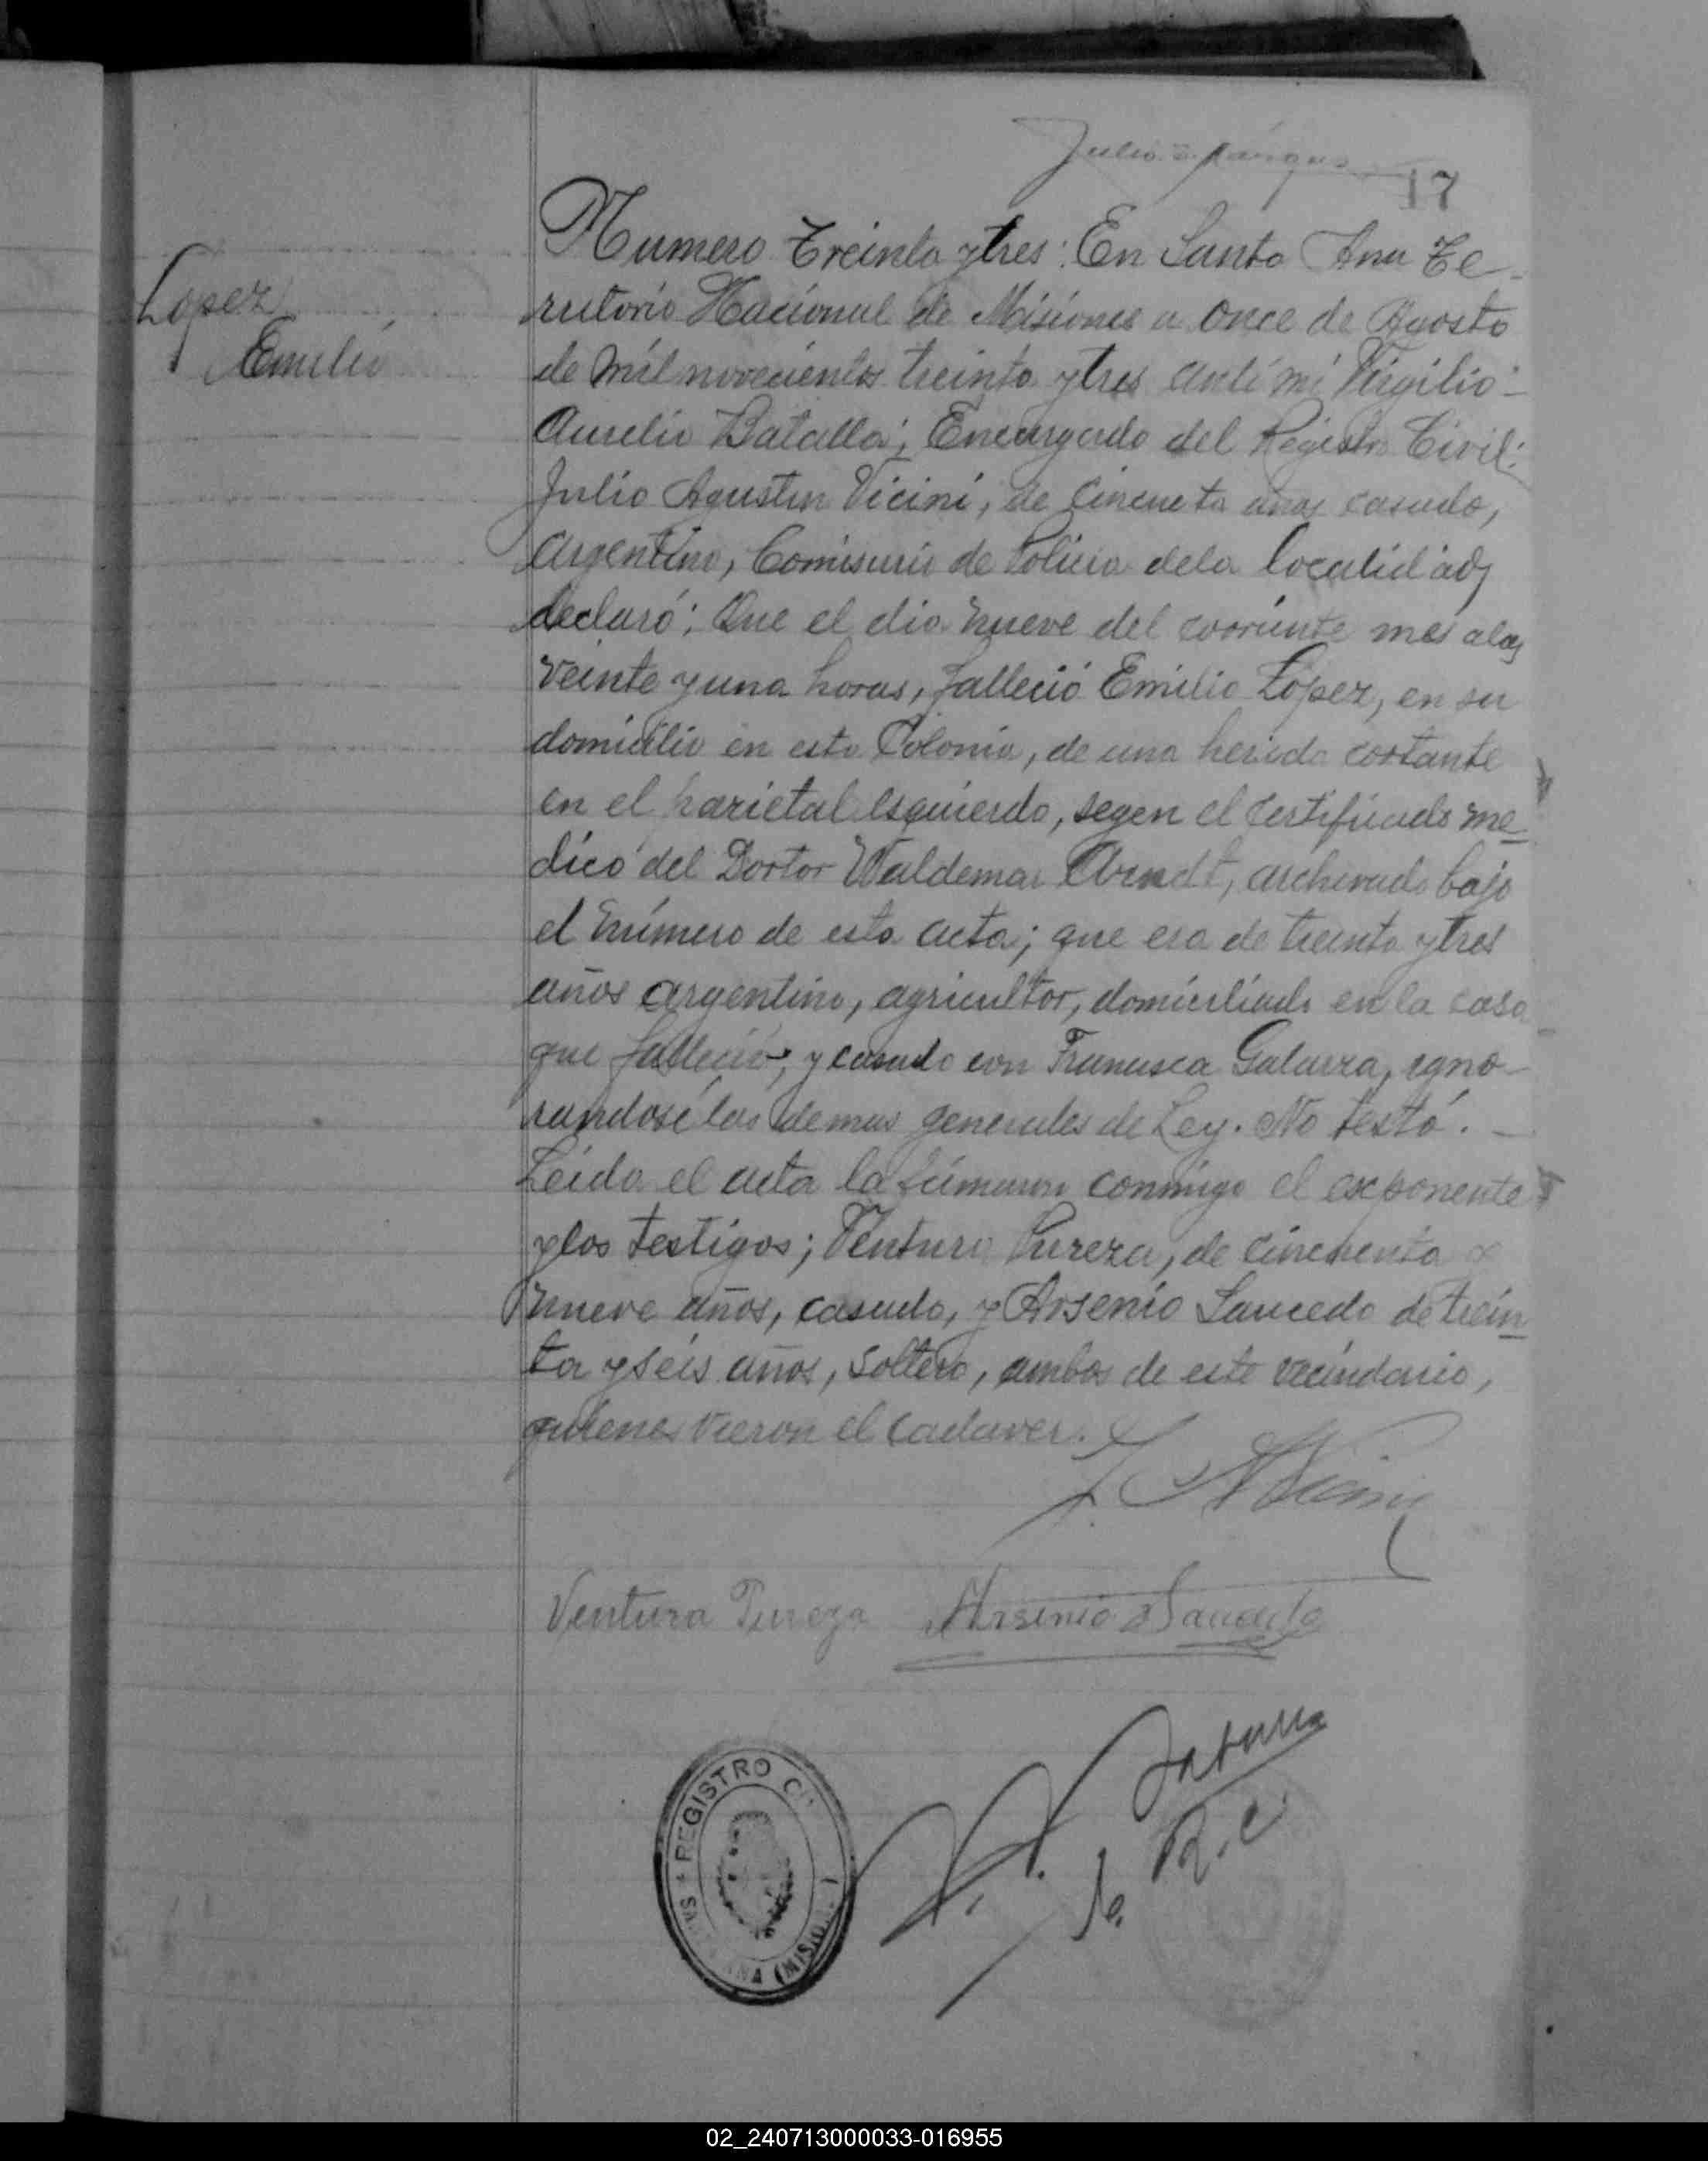 17
Lopez
Emilio
Numero Treinta y tres: En Santa Ana Te-
rritorio Nacional de Misiones a once de Agosto
de mil novecientos treinta y tres anti mi Virgilio
Aurelio Batalla; Encargado del Registro Civil:
Julio Agustin Vicini, de cincueta años casado,
argentino, Comisario de Policia dela localidad
declaró: Que el dia nueve del corriente mes alas
veinte y una horas, falleció Emilio López, en su
domicilio en esta Colonia, de una herida cortante
en el parietal esquierdo, segen el certificado me
dico del Doctor Waldemar Arndt, archivado bajo
el número de esta acta; que era de treinta y tres
años argentino, agricultor, domiciliado en la casa
que falleció, y casado con Francisca Galarza, igno-
randosé las demas generales de Ley. No testó. —
Leida el acta la firmaron conmigo el exponente
y los testigos; Ventura Pureza, de cincuenta y
nueve años, casado, y Arsenio Saucedo de trein
ta y seis años, soltero, ambos de este vecindario,
quienes vieron el cadaver.
Ventura Pureza Arsenio Saucedo
REGISTRO
ANA (MISIONES)
R. C
02_240713000033-016955